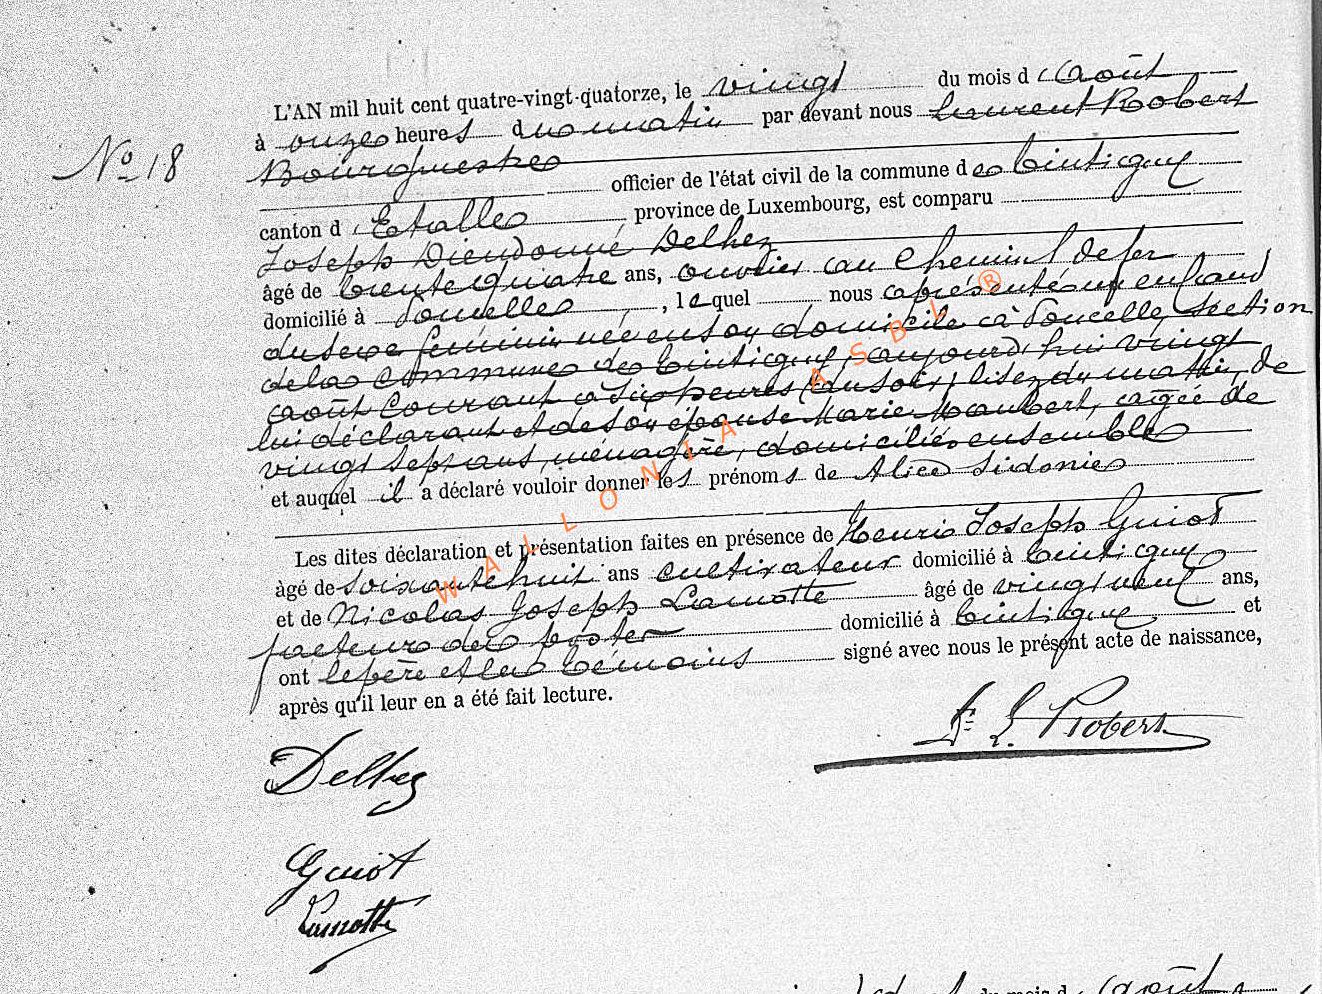 L'AN mil huit cent quatre-vingt-quatorze, le vingt du mois d'août
No 18
à onze heures du matin par devant nous Laurent Robert
Bourgmestre
officier de l'état civil de la commune de Tintigny
canton d'Etalle province de Luxembourg, est comparu
Joseph Dieudonné Delhez
âgé de trente quatre ans, ouvrier au chemin de fer
domicilié à Poncelle, lequel nous a présenté un enfant
du sexe féminin née en son domicile à Poncelle, section
de la commune de Tintigny, aujourd'hui vingt
août courant à six heures (du soir) lisez du matin, de
lui déclarant et de son épouse Marie Maubert, agée de
vingt sept ans, ménagère, domiciliée ensemble
et auquel il a déclaré vouloir donner les prénoms de Alice Sidonie
Les dites déclaration et présentation faites en présence de Henri Joseph Guiot
âgé de soixante huit ans cultivateur domicilié à Tintigny
et de Nicolas Joseph Lamotte âgé de vingt neuf ans,
facteur des postes domicilié à Tintigny et
ont le père et les témoins signé avec nous le présent acte de naissance,
après qu'il leur en a été fait lecture.
L. Robert
Delhez
Guiot
Lamotte
WALLONIA ASBL ®
du mois d'août